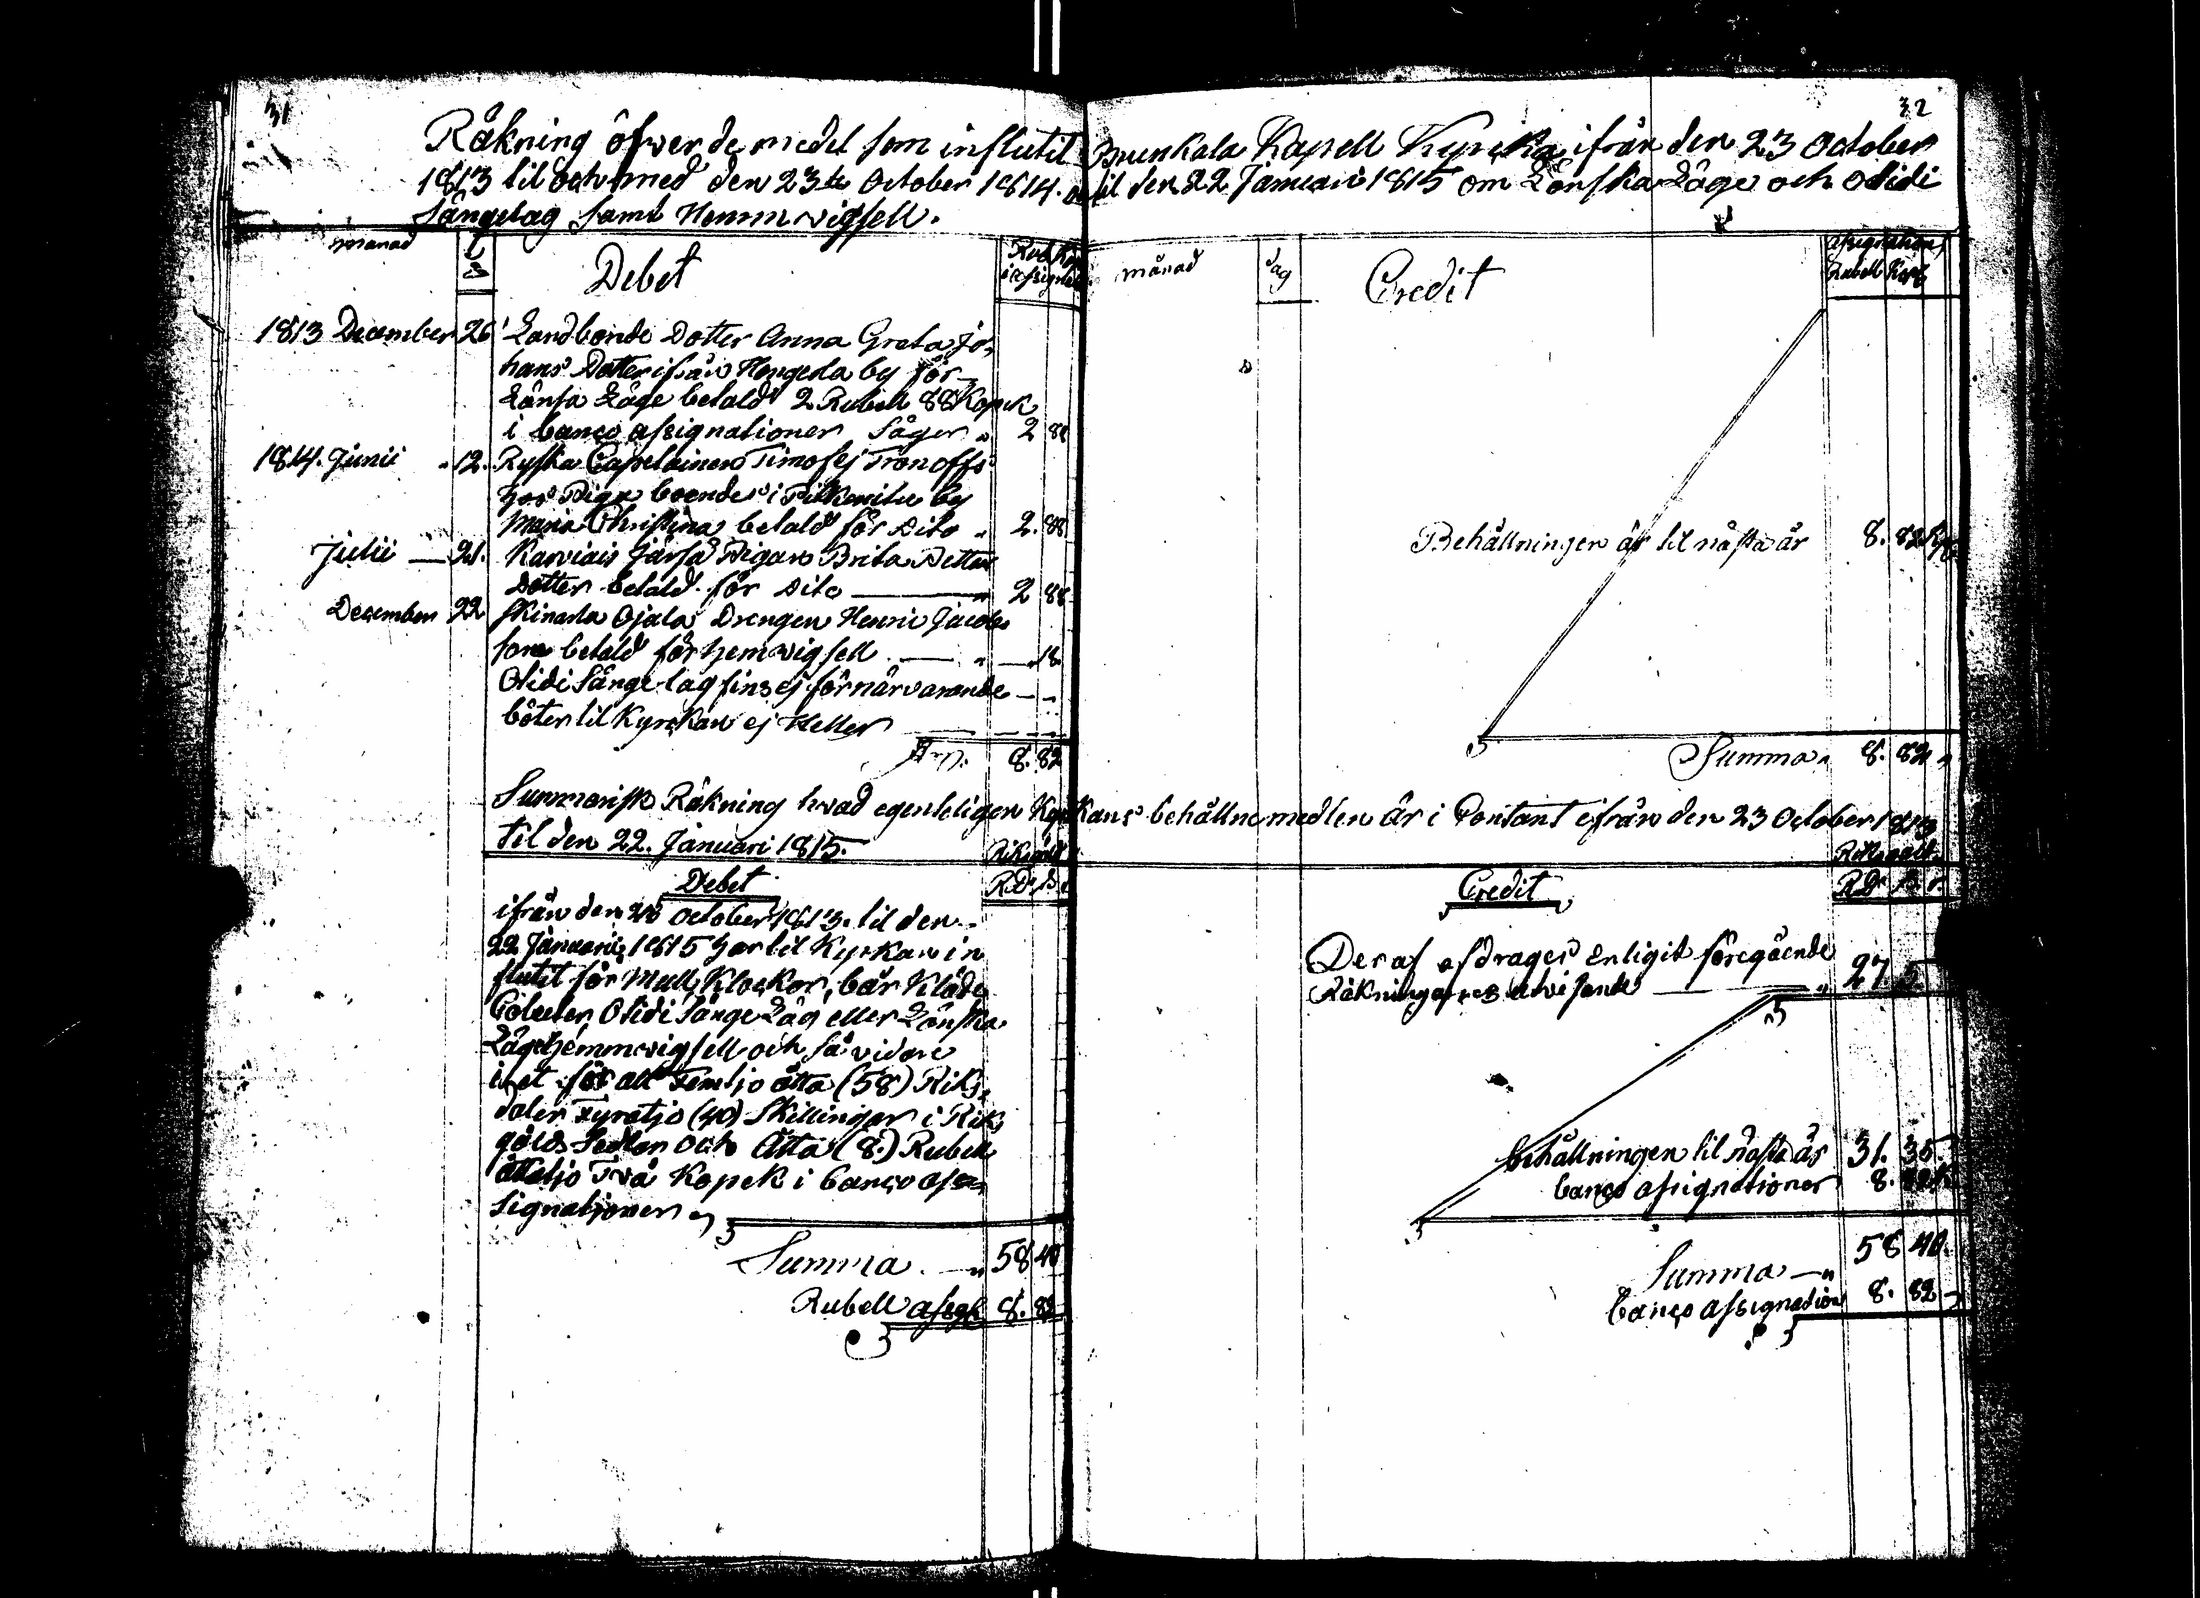 31
32
Räkning öfver de medel som influtit Brunkala Kapell Kyrcka ifrån den 23 October
1813 til och med den 23de October 1814. til den 22 Januari 1815 om Lönska Läge och Otidi
Sängelag samt Hemmvigsell.
månad
Debet
Rub Kop
i assignat
1813 December 26 Landbonde Dotter Anna Greta Jo-
hans Dotter ifrån Hongerla by för
Lönsa Läge betald 2 Rubell 88 Kopek
i banco assignationer säger „ 2 88
1814. Junii 12. Ryska Capelainen Timofej Tronoffs
hos Piga boende i by
Maria Christina betald för Dito „ 2. 88
Julii — 21. Karviais Järfä Pigan Brita
Dotter betald för Dito — 2 88
December 22 Skinarla Ojala Drengen Henric Jacobs
son betald för hemvigsell — „ — 18
Otidi Sänge lag fins ej för närvarande — -
böter til Kyrckan ej Heller
8. 82
månad
dag
Credit
assignation
Rubell Kop
Behållningen är til nästa år 8. 82
Summa „ 8. 82 „
Summarisk Räkning hvad egenteligen Kyrckans behållne medlen är i Contant ifrån den 23 October 1813
til den 22. Januari 1815.
Riksgäld
Debet
R.D. s. r
ifrån den 23 October 1813. til den
22 Januarii 1815 har til Kyrkan in
flutit för Mull, Klockor, bår Kläde
Colecter Otidi Sänge Läg eller Lönska
Läge hemmvigsell och så vidare
i et för alt Femtjo åtta (58) Riks-
daler Fyratjo (40) Skillingar i Riks
gälds Sedlar Och Åtta (8.) Rubell
åttatjo Två Kopek i banco as-
signationer
Summa. — „ 58 40
Rubell assign 8. 82
Riksgäld
Credit
R.D. s. r.
Der af afdrages enligit föregående
Räkningarnes utvisande — „ 27. 5.
behållningen til nästa år 31. 35.
banco assignationer 8. 82 K
Summa — „ 58 40.
banco assignation 8. 82